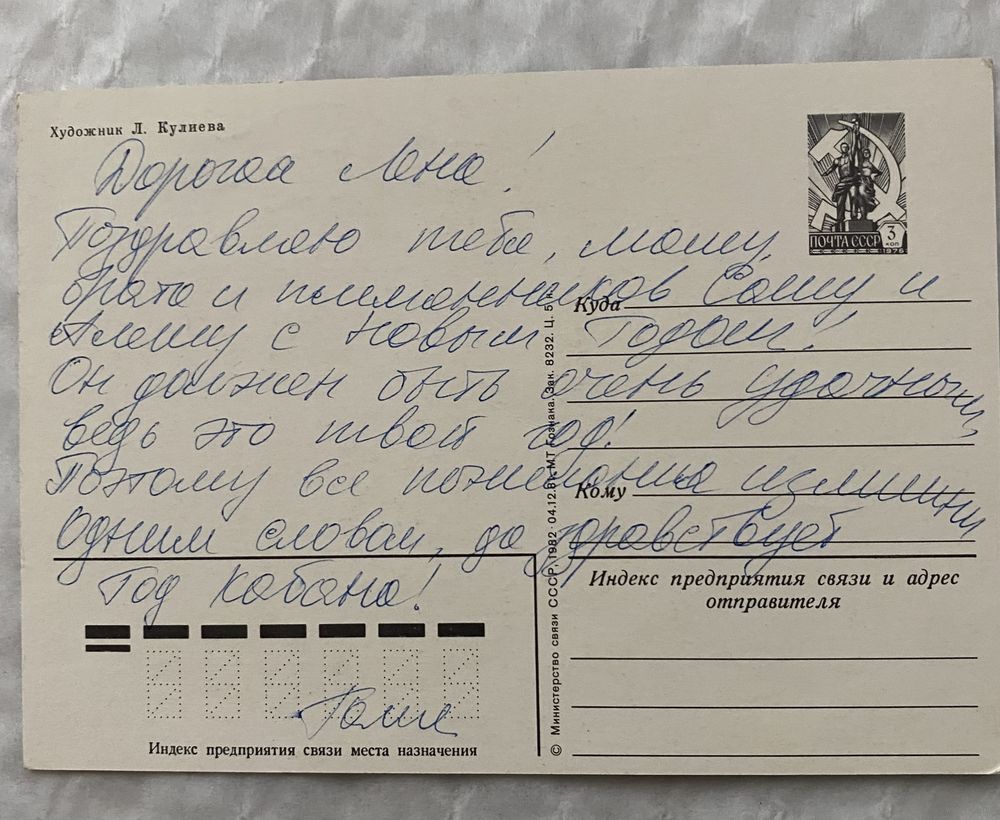 Художник Л. Кулиева
Дорогая Лена!
Поздравляю тебя, мою
брата и племянников Сашу и
Алешу с Новым Годом!
Он должен быть очень удачным
ведь это твой год!
Поэтому все пожелания излишни
Одним словом, да здравствует
Год Кабана!
ПОЧТА СССР 3 КОП
1976
Куда
Кому
© Министерство связи СССР, 1982. 04.12.81. МТ Гознака. Зак. 8232. Ц. 5 к.
Индекс предприятия связи и адрес
отправителя
Индекс предприятия связи места назначения